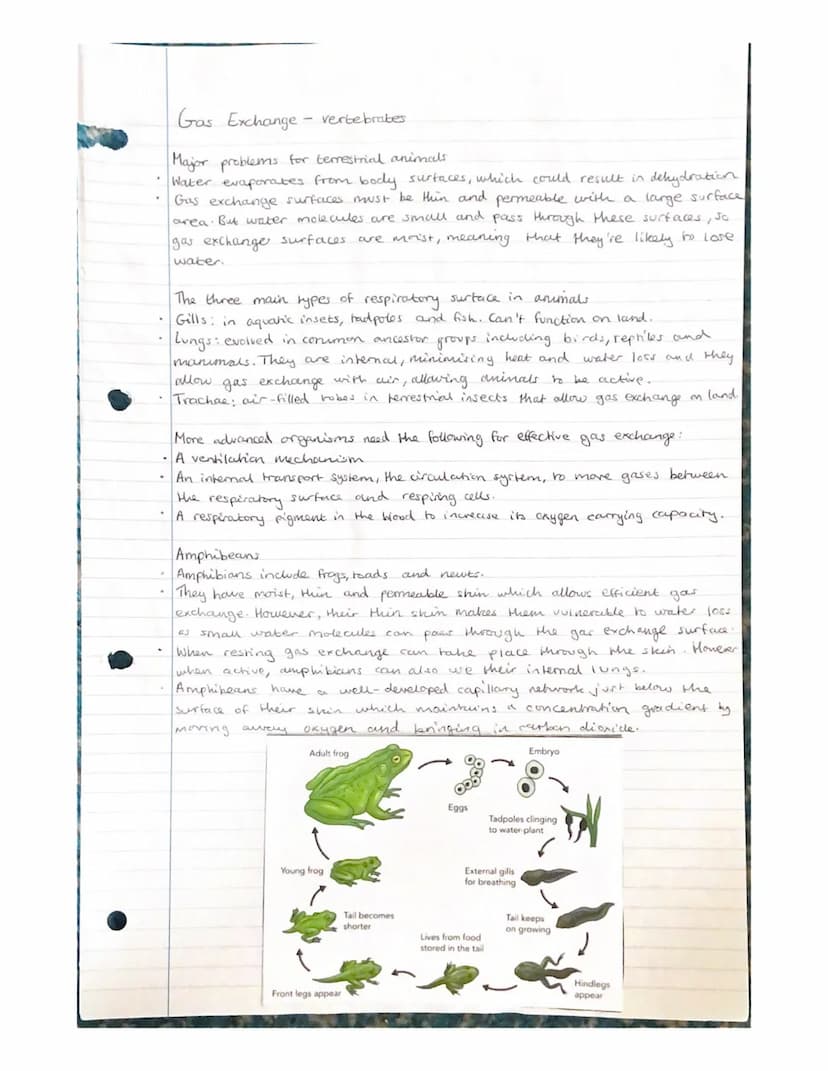 Gas Exchange - vertebrates
Major problems for terrestrial animals
· Water evaporates from body surfaces, which could result in dehydration
· Gas exchange surfaces must be thin and permeable with a large surface
area. But water molecules are small and pass through these surfaces, so
gas exchange surfaces are moist, meaning that they're likely to lose
water.
The three main types of respiratory surface in animals
· Gills: in aquatic insets, tadpoles and fish. Can't function on land.
· Lungs: evolved in common ancestor groups including birds, reptiles and
mammals. They are internal, minimising heat and water loss and they
allow gas exchange with air, allowing animals to be active.
· Trachae: air-filled tubes in terrestrial insects that allow gas exchange on land
More advanced organisms need the following for effective gas exchange:
· A ventilation mechanism
· An internal transport system, the circulation system, to move gases between
the respiratory surface and respiring cells.
· A respiratory pigment in the blood to increase its oxygen carrying capacity.
Amphibeans
· Amphibians include frogs, toads and newts.
· They have moist, thin and permeable skin which allows efficient gas
exchange. However, their thin skin makes them vulnerable to water loss
as small water molecules can pass through the gas exchange surface.
· When resting gas exchange can take place through the skin. However
when active, amphibians can also use their internal lungs.
· Amphibeans have a well-developed capillary network just below the
surface of their skin which maintains a concentration gradient by
moving away oxygen and bringing in carbon dioxide.
Adult frog
Embryo
Eggs
Tadpoles clinging
to water-plant
Young frog
External gills
for breathing
Tail becomes
shorter
Tail keeps
on growing
Lives from food
stored in the tail
Front legs appear
Hindlegs
appear